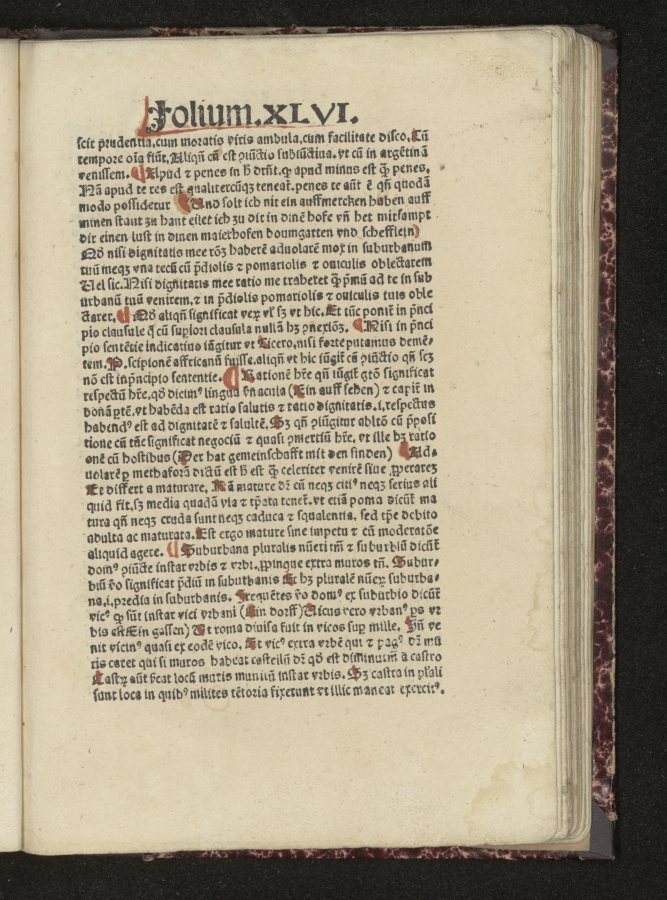 Folium.XLVI.
scit prudentia, cum moratis viris ambula, cum facilitate disco. Cū
tempore oīa fiūt, Aliqñ cū est ꝯiūctio subiūctiua. vt cū in argētinā
venissem. ¶ Apud ⁊ penes in h̄ drn̄t. ꝙ apud minus est ꝙ̄ penes.
Nā apud te res est qualitercūqꝫ teneat. penes te aūt ē qn̄ quodā
modo possidetur ¶ Und solt ich nit ein auffmercken haben auff
minen stant zu hant eilet ich zu dit in dinē hofe vn̄ het mitsampt
dir einen lust in dinen maierhofen boumgatten vnd schefflein)
Nō nisi dignitatis mee rōꝫ haberē aduolarē mox in suburbanum
tuū meqꝫ vna tecū cū p̄diolis ⁊ pomariolis ⁊ ouiculis oblectarem
Uel sic. Nisi dignitatis mee ratio me traheret ꝙ pmū ad te in sub
urbanū tuū venirem. ⁊ in p̄diolis pomariolis ⁊ ouiculis tuis oble
ctarer. ¶ Nō aliqn̄ significat vex vl̓ sꝫ vt hic. Et tūc ponit̄ in pn̄ci
pio clausule q̄ cū supiori clausula nullā hꝫ ꝯnexiōꝫ. ¶ Nisi in pn̄ci
pio sentētie indicatiuo iūgitur vt Cicero. nisi forte putamus demē
tem. P. scipionē affricanū fuisse. aliqn̄ vt hic iūgit̄ cū ꝯiūctio qn̄ scꝫ
nō est in p̄ncipio sententie. ¶ Rationē hr̄e qn̄ iūgit̄ gtō significat
respectū hr̄e. qd̓ dicimꝰ lingua v̄nacula (Ein auff sehen) ⁊ capit̄ in
bonā ptē. vt habēda est ratio salutis ⁊ ratio dignitatis. i. respectus
habendꝰ est ad dignitatē ⁊ salutē. Sꝫ qn̄ ꝯiūgitur abltō cū p̄posi
tione cū tūc significat negociū ⁊ quasi ꝯmertiū hr̄e. vt ille hꝫ ratio
onē cū hostibus (Der hat gemeinschafft mit den finden) ¶ Ad-
uolarē ꝑ methaforā dictū est h̄ est ꝙ celeriter venire siue ꝓperareꝫ
Et differt a maturare. Nā mature dr̄ cū neqꝫ citiꝰ neqꝫ serius ali
quid fit. sꝫ media quadā via ⁊ tꝑata tenet̄. vt etiā poma dicūt̄ ma
tura qn̄ neqꝫ cruda sunt neqꝫ caduca ⁊ squalentia. sed tp̄e debito
adulta ac maturata. Est ergo mature sine impetu ⁊ cū moderatōe
aliquid agere. ¶ Suburbana pluralis nūeri tm̄ ⁊ suburbiū dicūt̄
domꝰ ꝯiūcte instar vrbis ⁊ vrbi. ꝓpinque extra muros tn̄. Subur-
biū v̓o significat p̄diū in suburbanis Et hꝫ pluralē nūeꝝ suburba-
na. i. predia in suburbanis. Frequētes v̓o domꝰ ex suburbio dicūt̄
vicꝰ ꝙ sūt instar vici vrbani (Ein dorff) Uicus vero vrbanꝰ ps vr
bis est (Ein gassen) Ut roma diuisa fuit in vicos sup mille. Un̄ ve
nit vicinꝰ quasi ex eodē vico. Et vicꝰ extra vrbē qui ⁊ pagꝰ dr̄ mu
ris caret qui si muros habeat castellū dr̄ qd̓ est diminutm̄ a castro
Castrꝝ aūt sc̓at locū muris munitū instar vrbis. Sꝫ castra in pl̓ali
sunt loca in quibꝰ milites tētoria fixerunt vt illic maneat exercitꝰ.